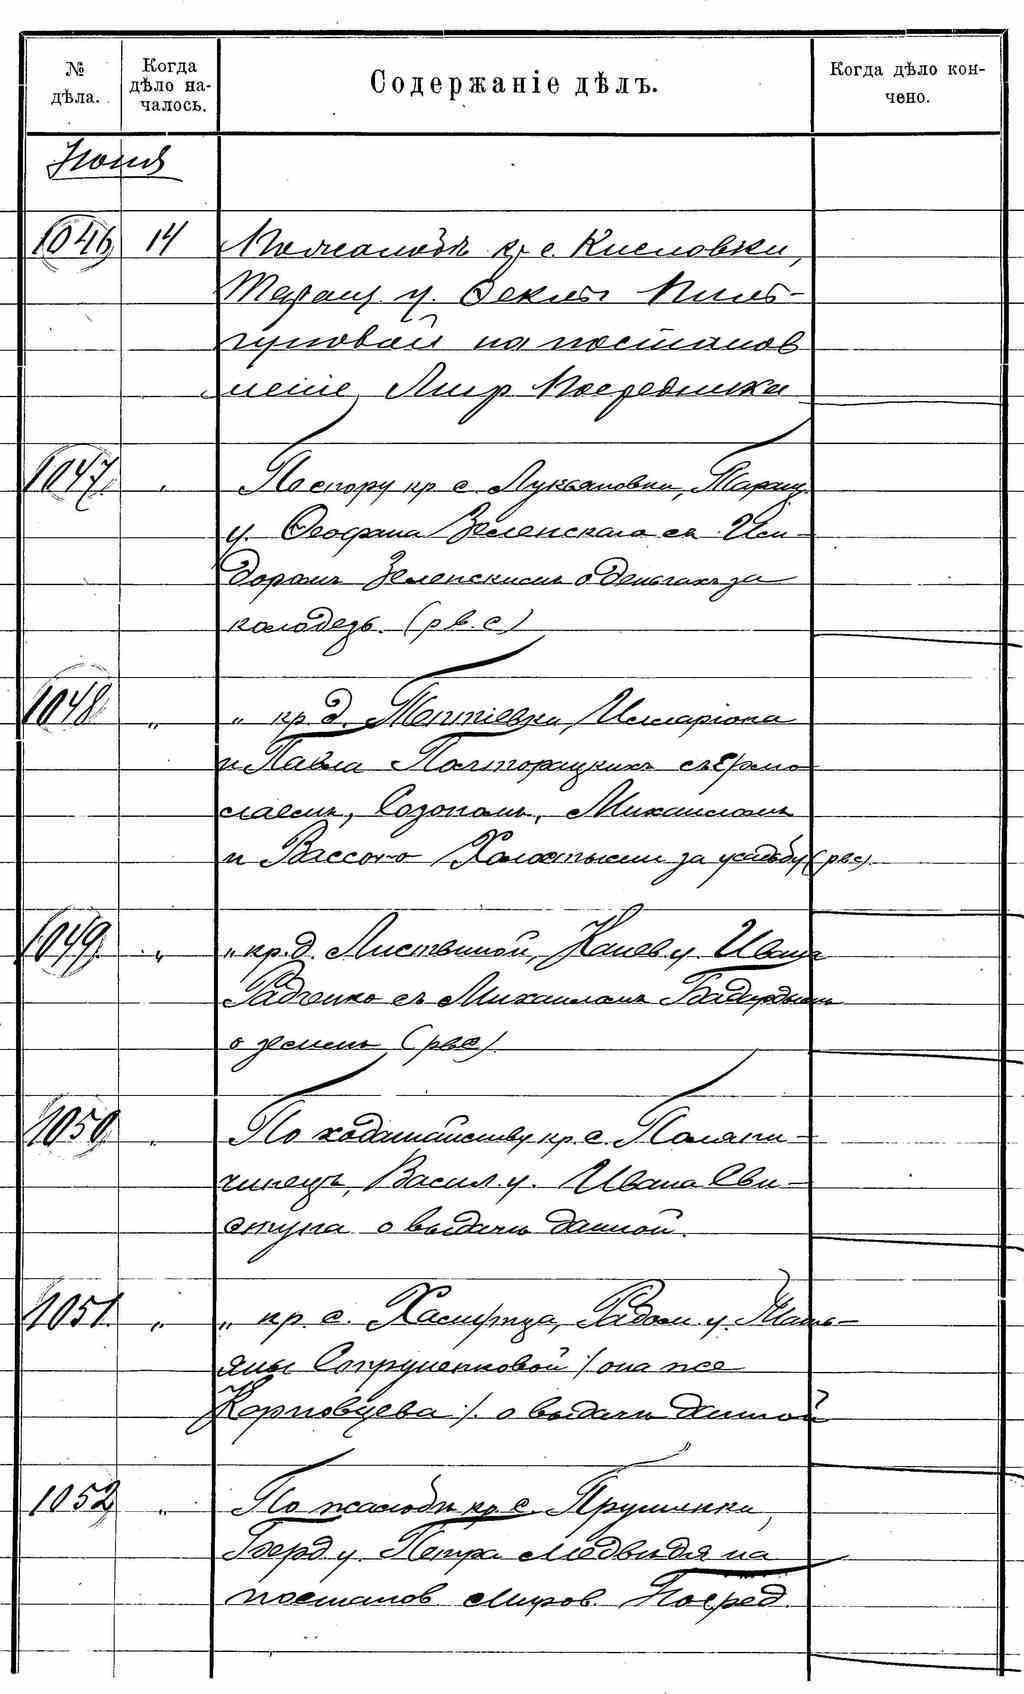 № дѣла.
Когда дѣло на-чалось.
Содержаніе дѣлъ.
Когда дѣло кон-чено.
Іюня
1046 14 По жалобѣ кр. с. Кисловки,
Таращ. у. Феклы Пиль-
гуновой на постанов
леніе Мир Посредника
1047 " По спору кр с. Лукьяновки, Таращ.
у. Феофана Зеленскаго съ Иси-
доромъ Зеленскимъ о деньгахъ за
колодезь. (р в. с)
1048 " " кр. д. Тептіевки, Илларіона
и Павла Полторацкихъ съ Ермо
лаемъ, Созономъ, Михаиломъ
и Вассою Холостыми за усадьбу (рвс).
1049 " " кр. д. Листвиной, Канев у. Ивана
Радченко съ Михаиломъ
о землѣ (рвс)
1050 " По ходатайству кр. с. Поляни-
чинецъ, Васил. у. Ивана Сви-
стуна о выдачѣ данной.
1051. " " кр. с. Радом. у. Тать-
яны Струченковой /. она же
Карповцева /. о выдачѣ данной
1052 " По жалобѣ кр. с. Прушинки,
Берд у. Петра Медвѣдя на
постанов. Миров. Посред.